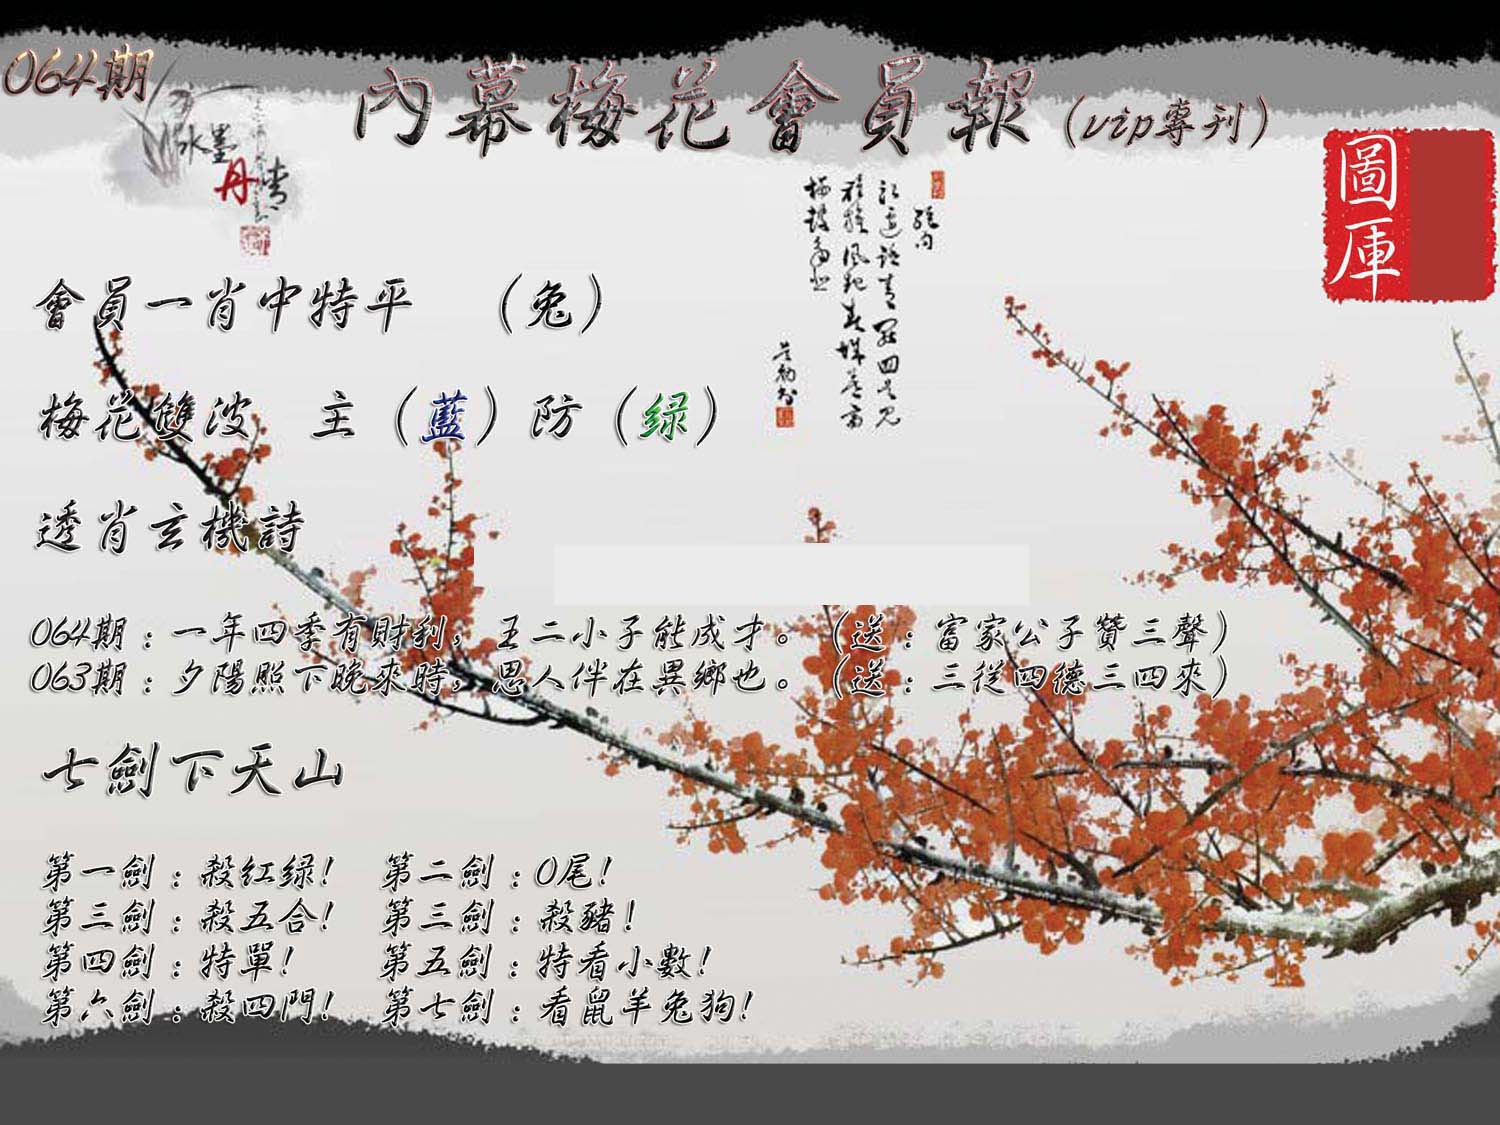 064期
內幕梅花會員報（vip專刊）
水墨
丹青
圖庫
會員一肖中特平　（兔）
梅花雙波　主（藍）防（绿）
透肖玄機詩
064期：一年四季有財利，王二小子能成才。（送：富家公子贊三聲）
063期：夕陽照下晚來時，思人伴在異鄉也。（送：三從四德三四來）
七劍下天山
第一劍：殺红绿!　第二劍：0尾!
第三劍：殺五合!　第三劍：殺豬!
第四劍：特單!　第五劍：特看小數!
第六劍：殺四門!　第七劍：看鼠羊兔狗!